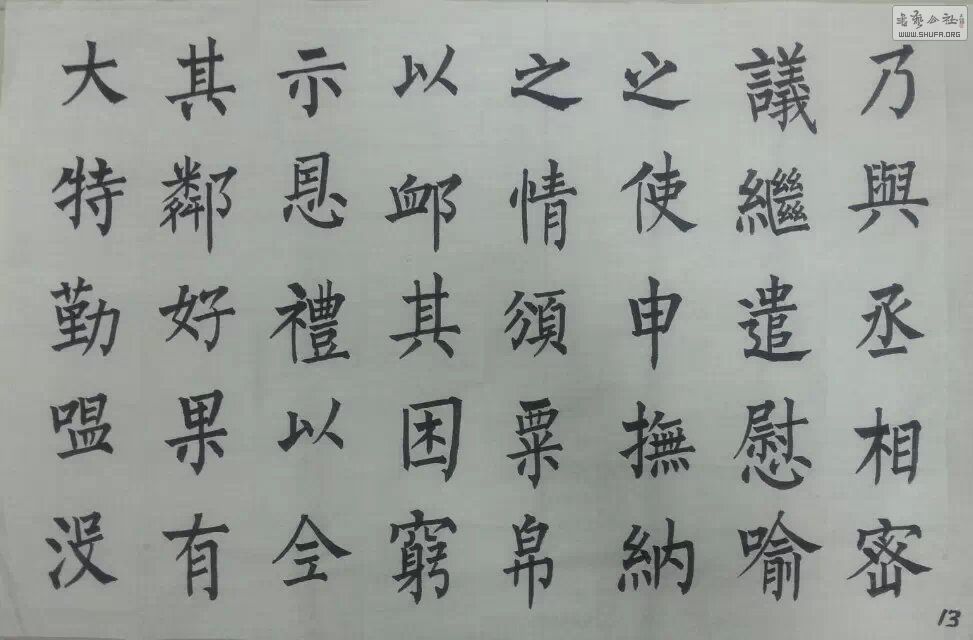 乃與丞相密
議繼遣慰喻
之使申撫納
之情頒粟帛
以卹其困窮
示恩禮以全
其鄰好果有
大特勤嗢没
13
书艺公社
WWW.SHUFA.ORG